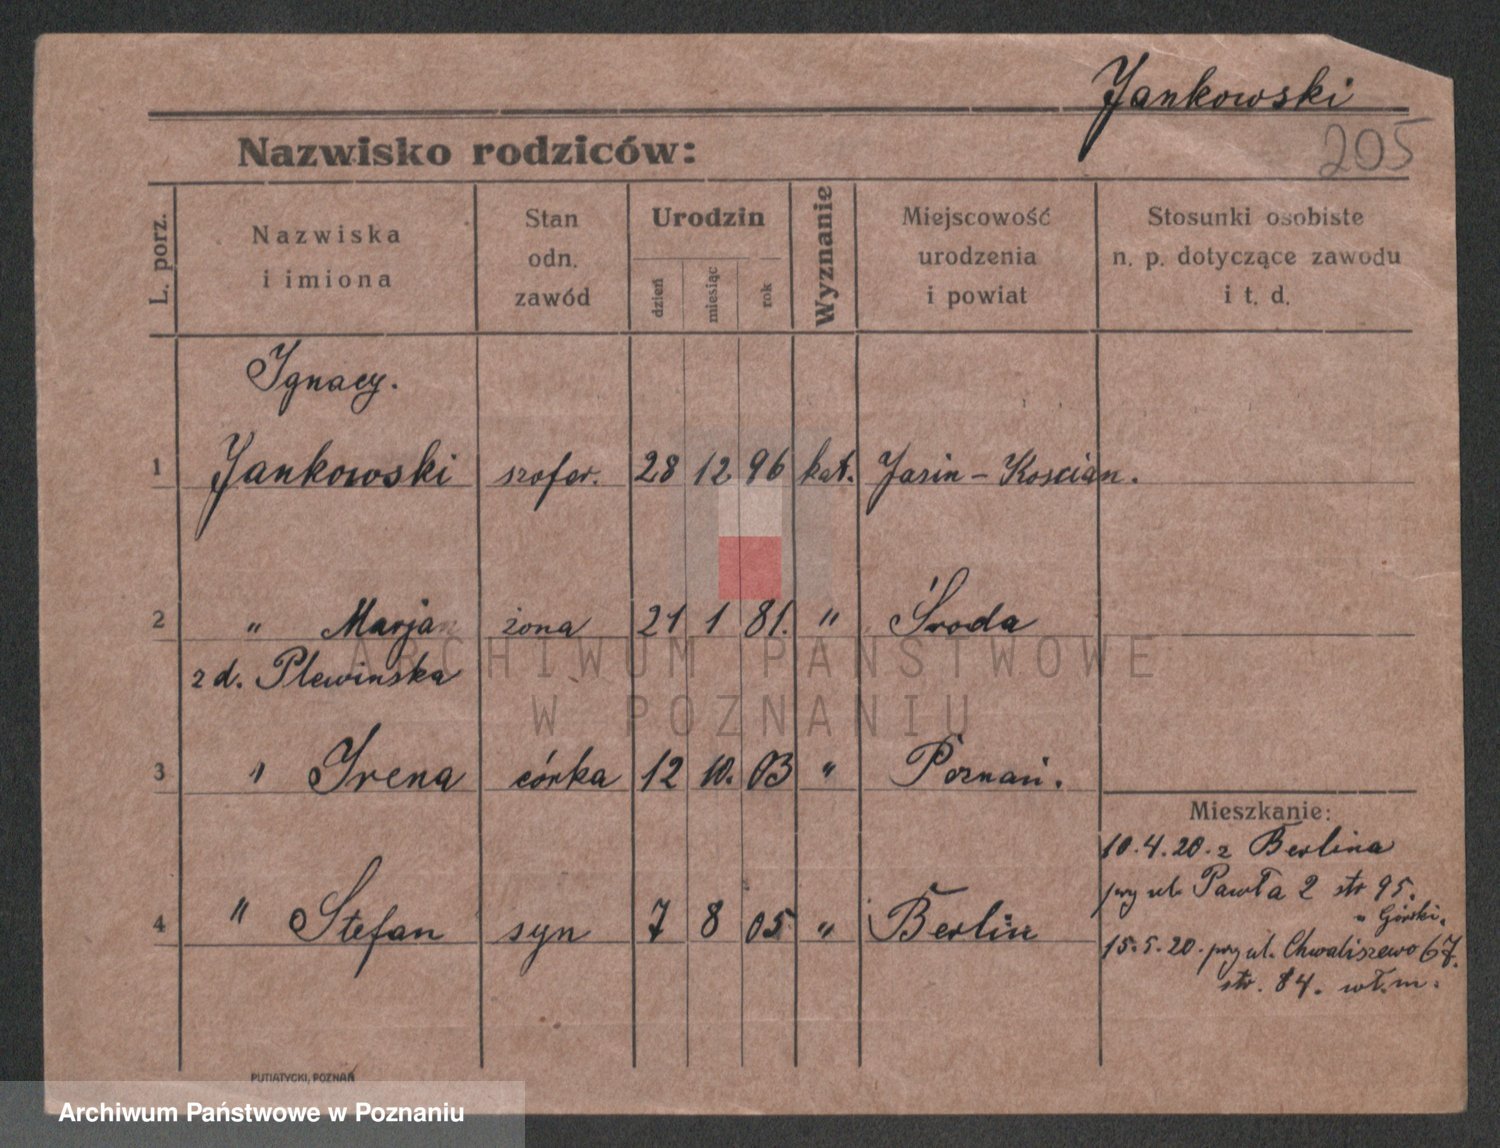 Jankowski
Nazwisko rodziców:
205
L. porz.
Nazwiska
i imiona
Stan
odn.
zawód
Urodzin
dzień
miesiąc
rok
Wyznanie
Miejscowość
urodzenia
i powiat
Stosunki osobiste
n. p. dotyczące zawodu
i t. d.
Ignacy.
1 Jankowski szofer. 28 12 96 kat. Jasin - Koscian.
2 " Marja żona 21 1 81. " Środa
z d. Plewinska
3 " Irena córka 12 10. 03 " Poznań.
4 " Stefan syn 7 8 05 " Berlin
Mieszkanie:
10.4.20. z Berlina
przy ul. Pawła 2 str 95.
u Górski.
15.5.20. przy ul. Chwaliszewo 67.
str. 84. wł. m.
ARCHIWUM PAŃSTWOWE
W POZNANIU
PUTIATYCKI, POZNAŃ
Archiwum Państwowe w Poznaniu